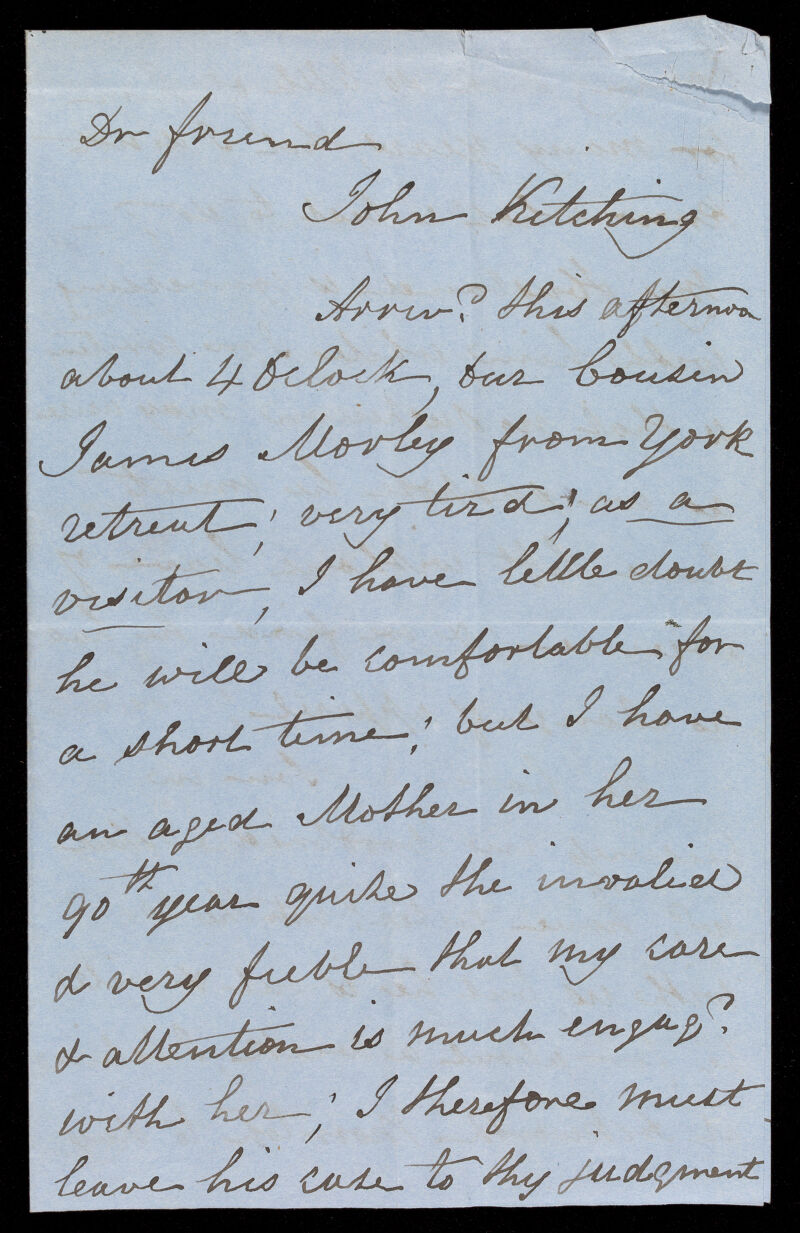 Dr friend
John Kitching
Arriv.d this afternoon
about 4 OClock, our Cousin
James Morley from York
retreat; very tired; as a
visitor, I have little doubt
he will be comfortable, for
a short time; but I have
an aged Mother in her
90th year quite the invalied
& very fieble that my care
& attention is much engag.d
with her; I therefore must
leave his case to thy judgment